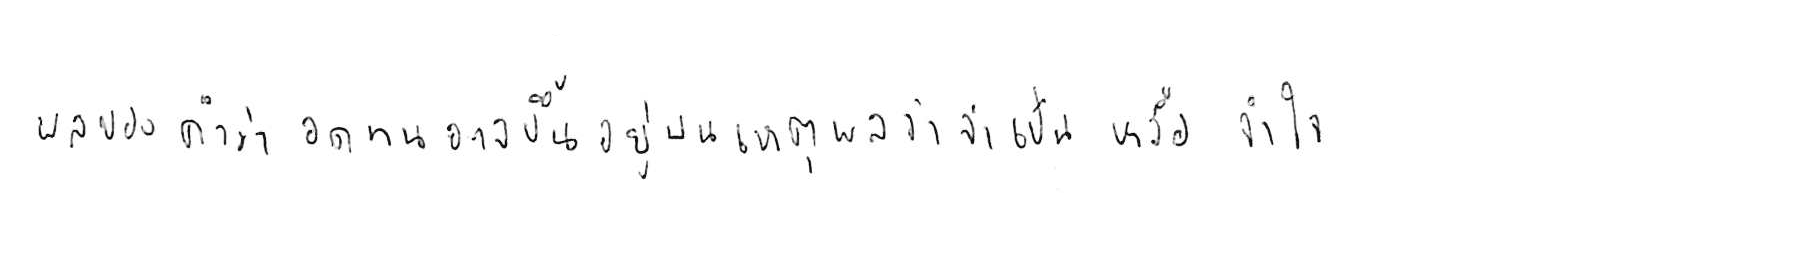 ผลของ คำว่า อดทนอาจขึ้นอยู่บนเหตุผลว่าจำเป็น หรือ จำใจ